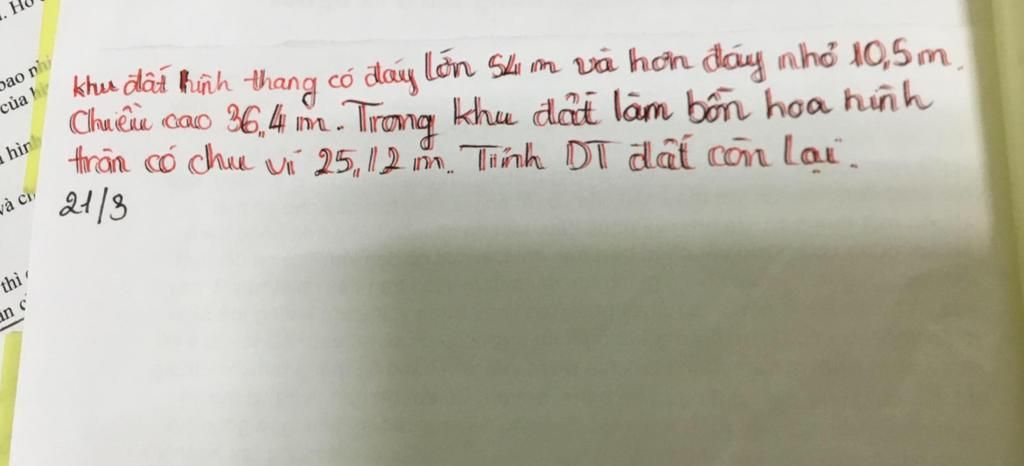 . Hồ
bao nhi
của h
khu đất hình thang có đáy lớn 54 m và hơn đáy nhỏ 10,5 m.
Chiều cao 36,4 m. Trong khu đất làm bồn hoa hình
tròn có chu vi 25,12 m. Tính DT đất còn lại.
21/3
hình
và ch
thì